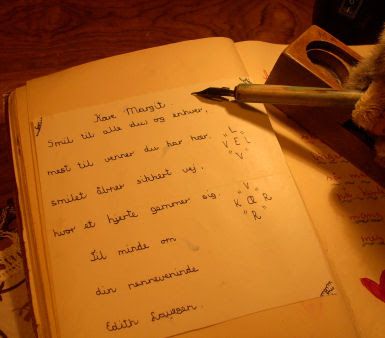 Kære Margit.
Smil til alle du og enhver,
mest til venner du har nær.
smilet åbner sikkert vej,
hvor et hjerte gemmer sig.
Til minde om
din penneveninde
Edith
"L"
V E L
"V"
"V"
K Æ R
"R"